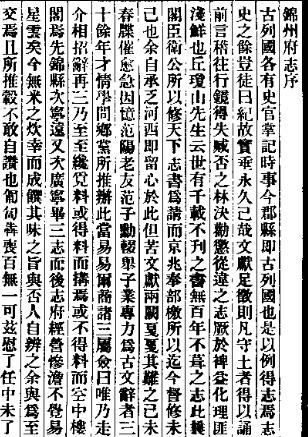 錦州府志序
古列國各有史官掌記時事今郡縣即古列國也是以例得志焉志
史之餘豈徒日紀故實垂永久已哉文獻足徵則凡守土者得以誦
前言稽往行鏡得失臧否之林決勸懲從違之志厥於裨益化理匪
淺鮮也丘瓊山先生云世有千載不刊之書無百年不葺之志此義
閣臣衛公所以修天下志書為請而京兆奉部檄所以迄今督修未
已也余自承乏河西即留心於此但苦文獻兩闕戛戛其難之己未
春牒催愈急因憶范陽老友范子勳輟舉子業專力為古文辭者三
十餘年才情學問鄉黨所推辦此當易易爾商諸三屬僉曰唯乃走
介相招辭再三乃至至纔覓料或得料而搆焉或不得料而空中樓
閣焉先錦縣次寧遠又次廣寧畢三志而後志府經營慘澹不覺易
星霜矣今無米之炊幸而成饌其味之旨與否人自辨之余與為至
交焉且所推轂不敢自讚也匍匐犇喪百無一可茲慰了任中未了